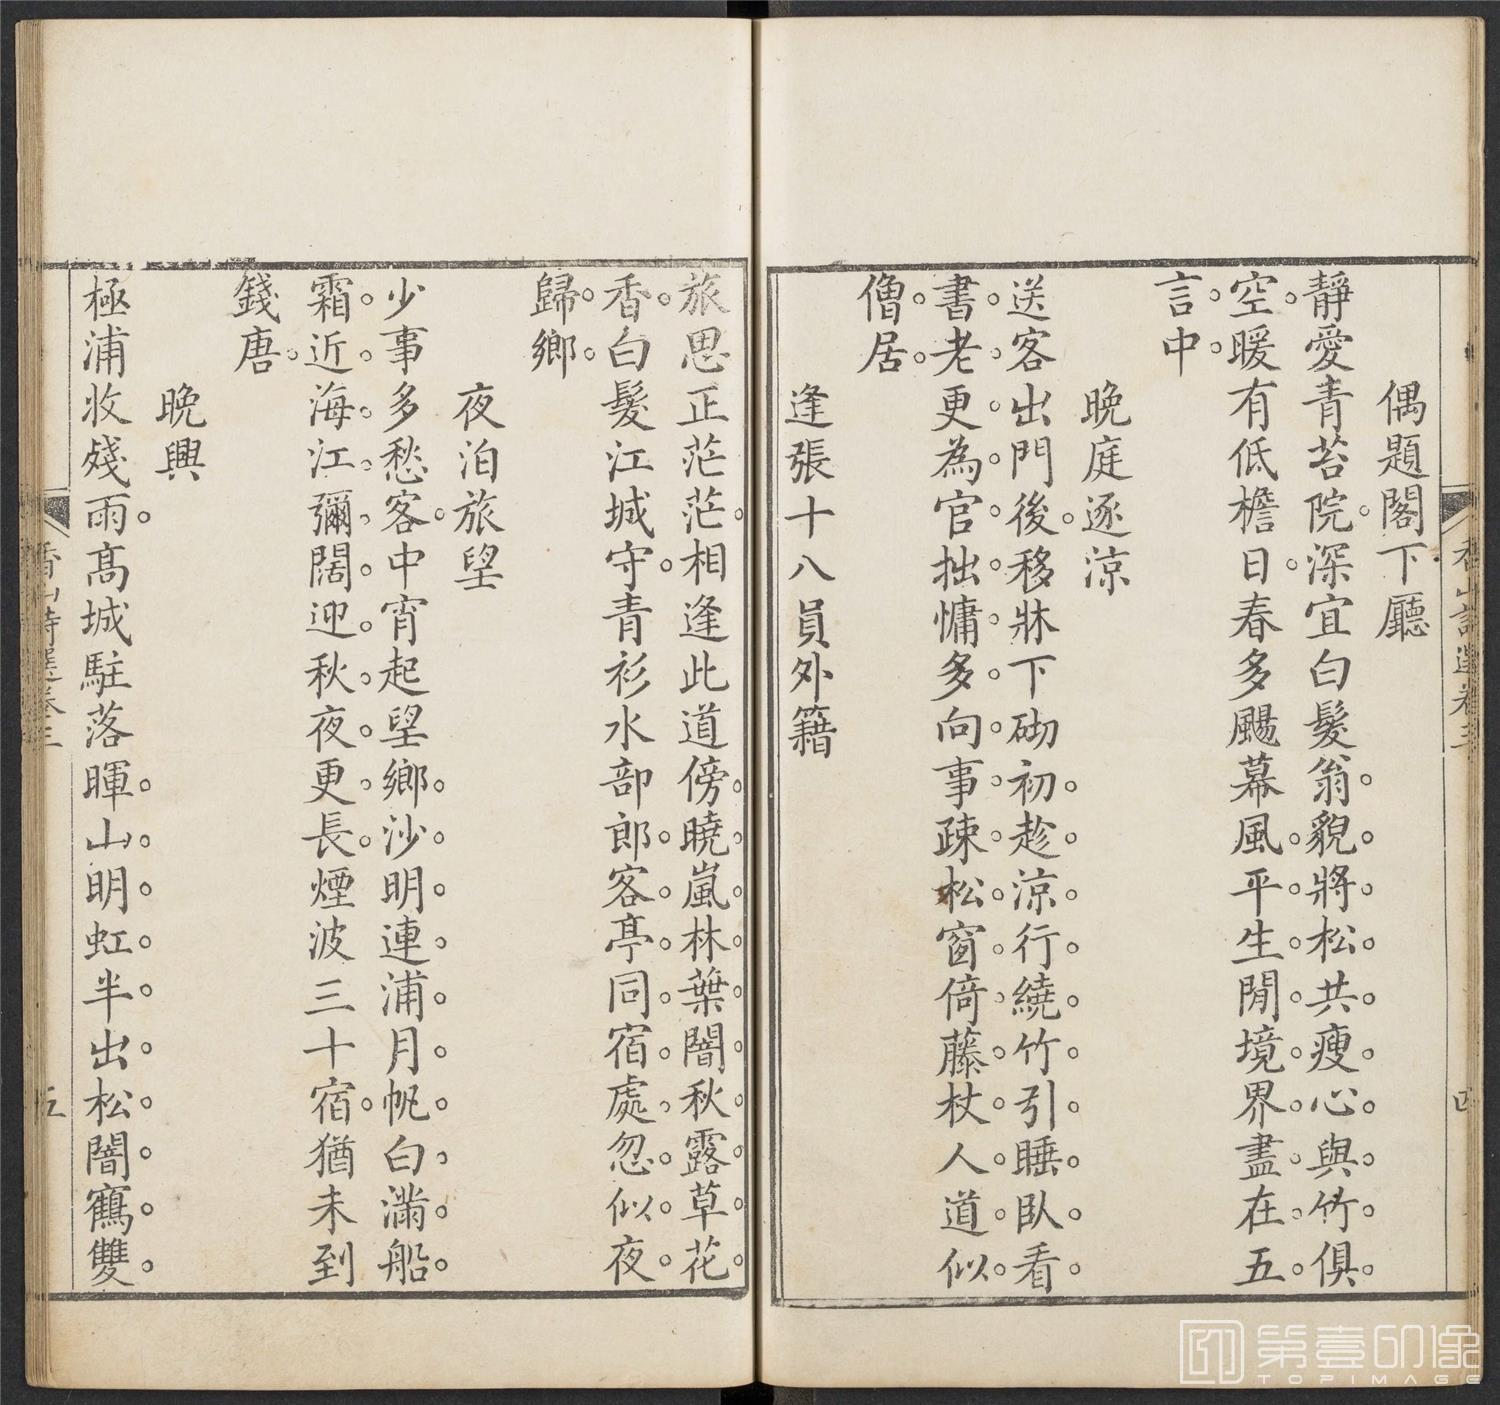 偶題閣下廳
靜愛青苔院深宜白髮翁貌將松共瘦心與竹俱
空暖有低檐日春多颺幕風平生閒境界盡在五
言中
晚庭逐涼
送客出門後移牀下砌初趁涼行繞竹引睡臥看
書老更為官拙慵多向事疎松窗倚藤杖人道似
僧居
逢張十八員外籍
旅思正茫茫相逢此道傍曉嵐林葉闇秋露草花
香白髮江城守青衫水部郎客亭同宿處忽似夜
歸鄉
夜泊旅望
少事多愁客中宵起望鄉沙明連浦月帆白滿船
霜近海江彌闊迎秋夜更長煙波三十宿猶未到
錢唐
晚興
極浦收殘雨高城駐落暉山明虹半出松闇鶴雙
香山詩選卷三
四
香山詩選卷三
五
第壹印像
TOPIMAGE